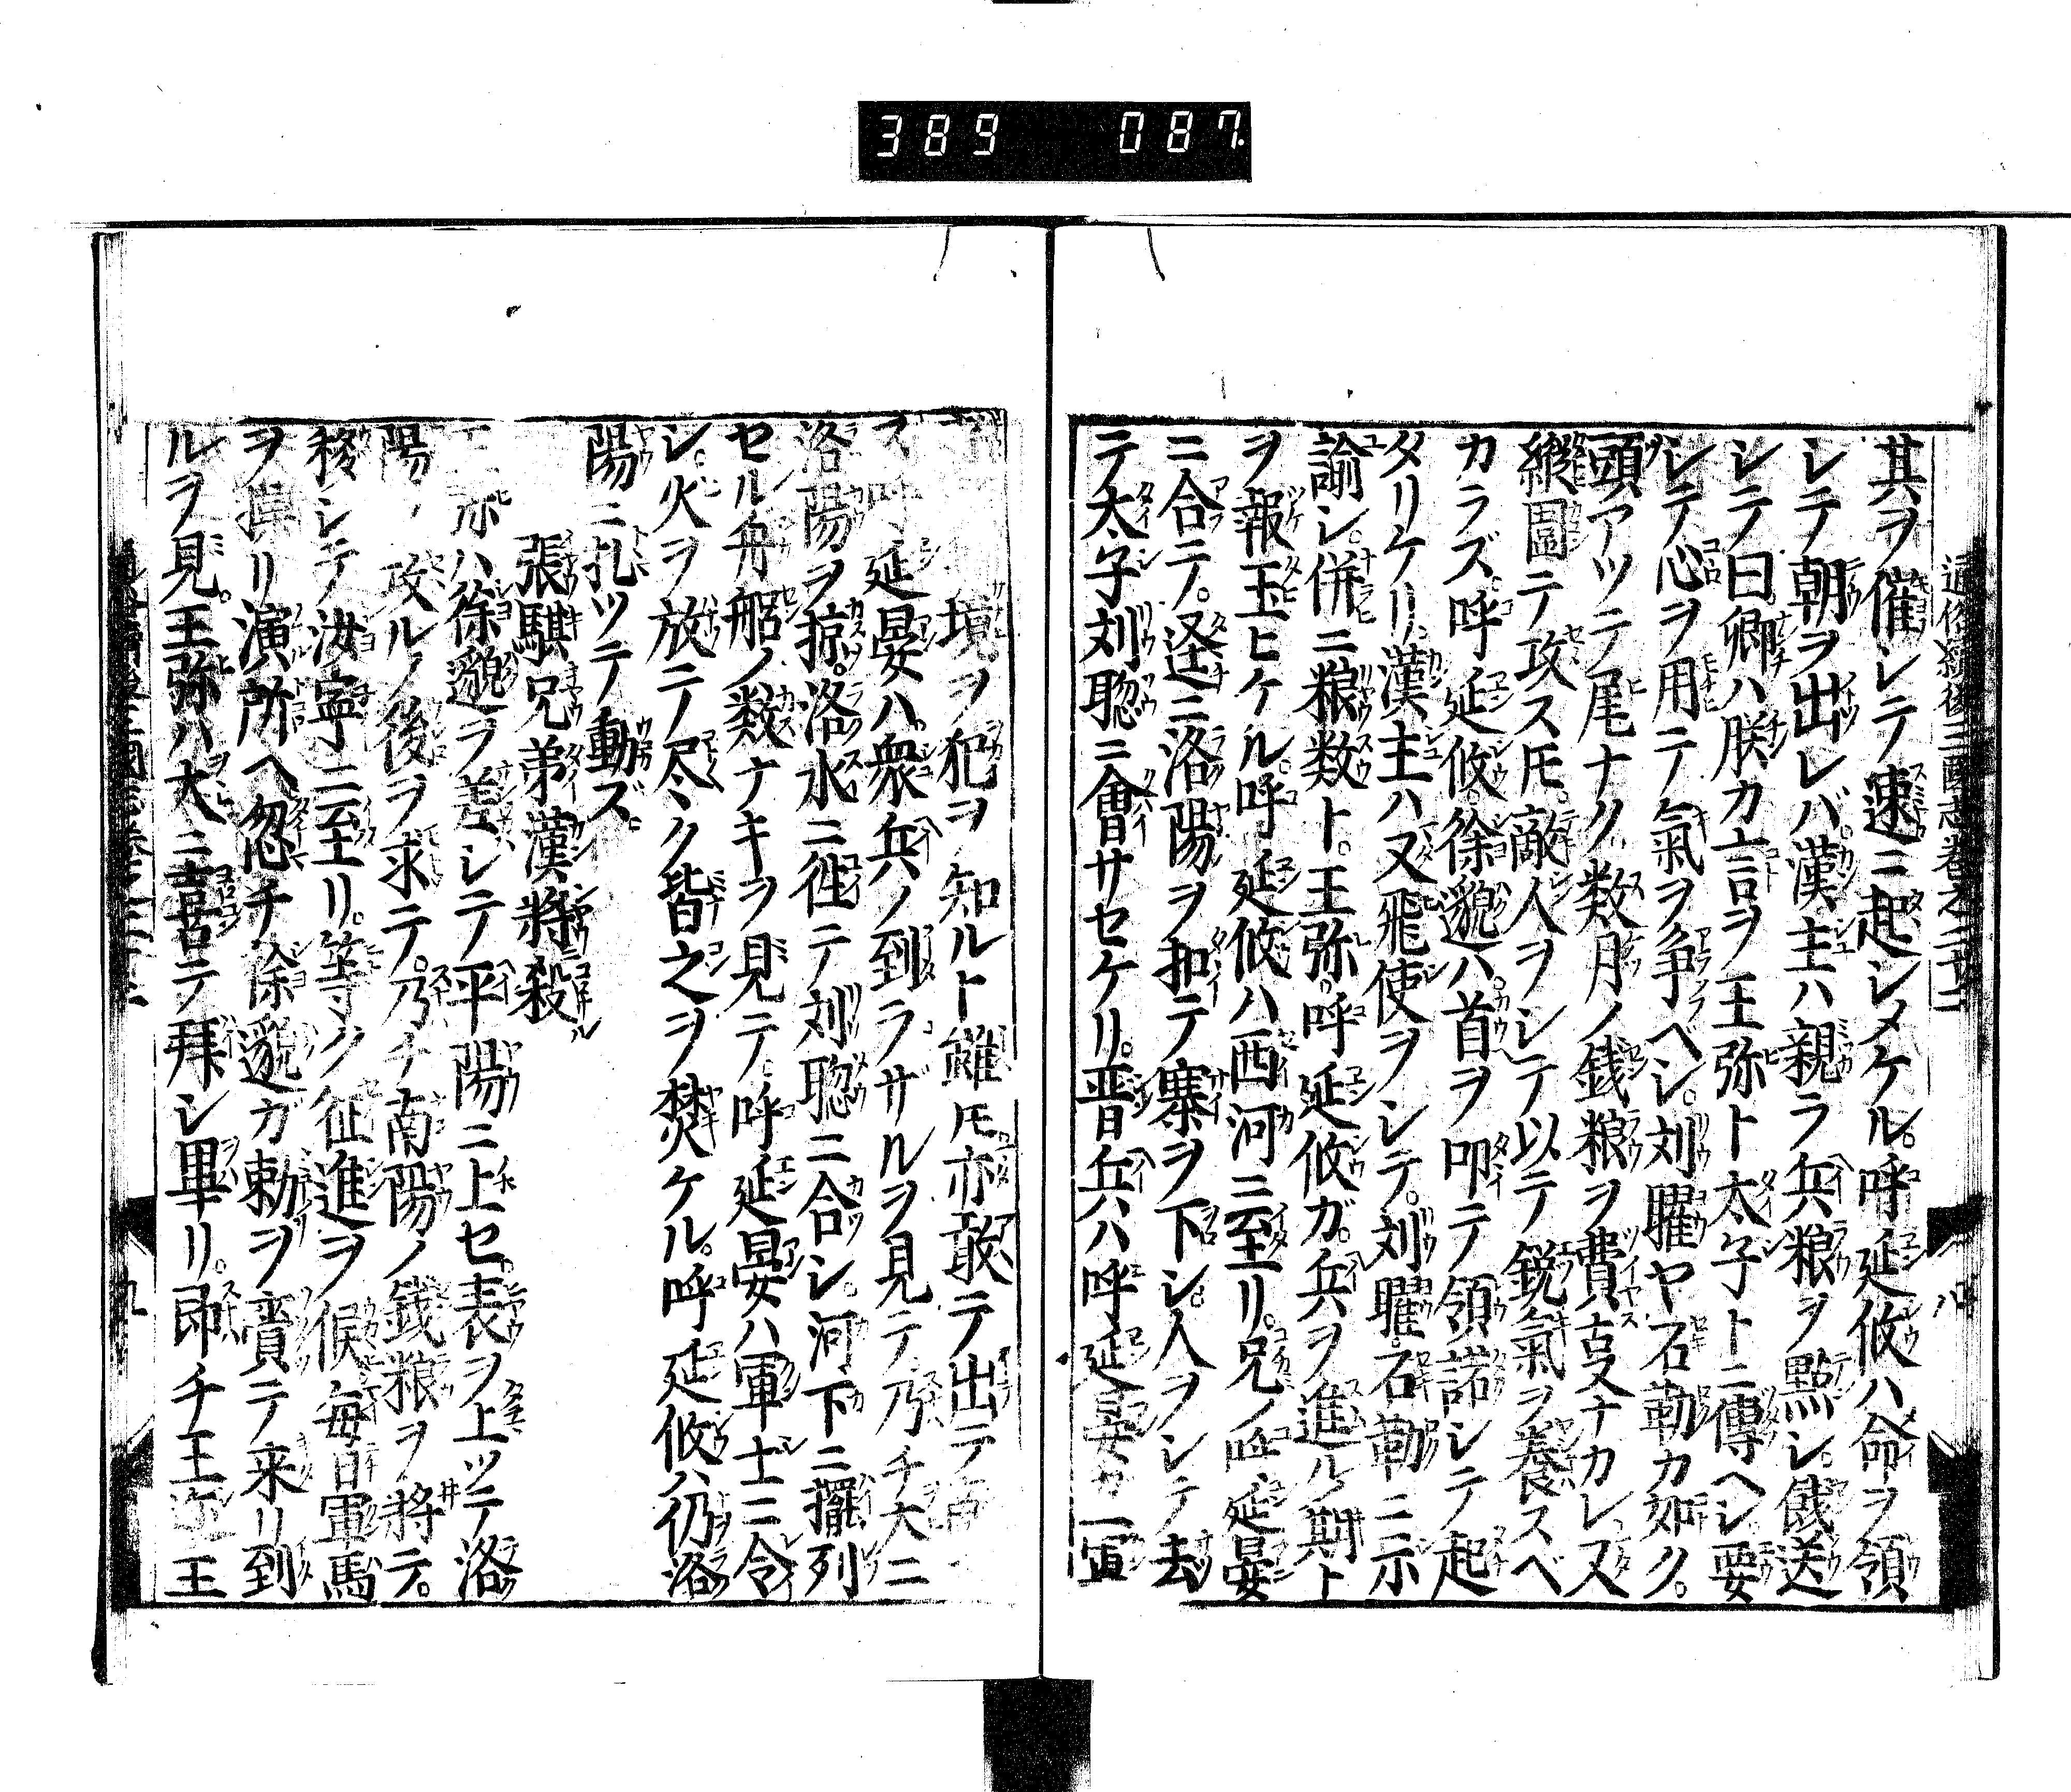 389 087
通俗續後三國志卷之二十二
八
其ヲ催シテ速ニ起シメケル。呼延攸ハ命ヲ領
シテ朝ヲ出レバ。漢主ハ親ラ兵粮ヲ點シ。餞送
シテ曰。卿ハ朕カ言ヲ王弥ト太子トニ傳ヘシ。要
シテ心ヲ用テ氣ヲ争ベシ。刘曜ヤ石勒カ如ク。
頭アツテ尾ナク。数月ノ銭粮ヲ費支ナカレ。又
縱圍テ攻ス𪜈。敵人ヲシテ以テ鋭氣ヲ養スベ
カラズ。呼延攸。徐邈ハ。首ヲ叩テ領諾シテ起
タリケリ。漢主ハ又飛使ヲシテ。刘曜。石勒ニ示
諭シ。併ニ粮数ト。王弥。呼延攸ガ。兵ヲ進ル期ト
ヲ報玉ヒケル。呼延攸ハ西河ニ至リ。兄ノ呼延晏
ニ合テ。逕ニ洛陽ヲ扣テ寨ヲ下シ。人ヲシテ去
テ太子刘聡ニ會サセケリ。晋兵ハ呼延晏カ一軍
境ヲ犯ヲ知ルト雖𪜈亦敢テ出テ
ス呼延晏ハ。衆兵ノ到ラザルヲ見テ乃チ大ニ
洛陽ヲ掠。洛水ニ徃テ刘聡ニ合シ。河下ニ擺列
セル舟舩ノ数ナキヲ見テ。呼延晏ハ軍士ニ令
シ。火ヲ放テ尽ク皆之ヲ焚ケル。呼延攸ハ仍洛
陽ニ扎ツテ動ズ。
張騏兄弟漢将殺
亦ハ徐邈ヲ差シテ平陽ニ上セ。表ヲ上ツテ洛
陽ノ攻ルノ後ヲ求テ。乃チ南陽ノ銭粮ヲ将テ。
移シテ汝寧ニ至リ。等ク征進ヲ候。毎日軍馬
ヲ操リ演所ヘ忽チ徐邈カ勅ヲ賷テ来リ到
ルヲ見。王弥ハ大ニ喜テ拜シ畢リ。即チ王弥王
九